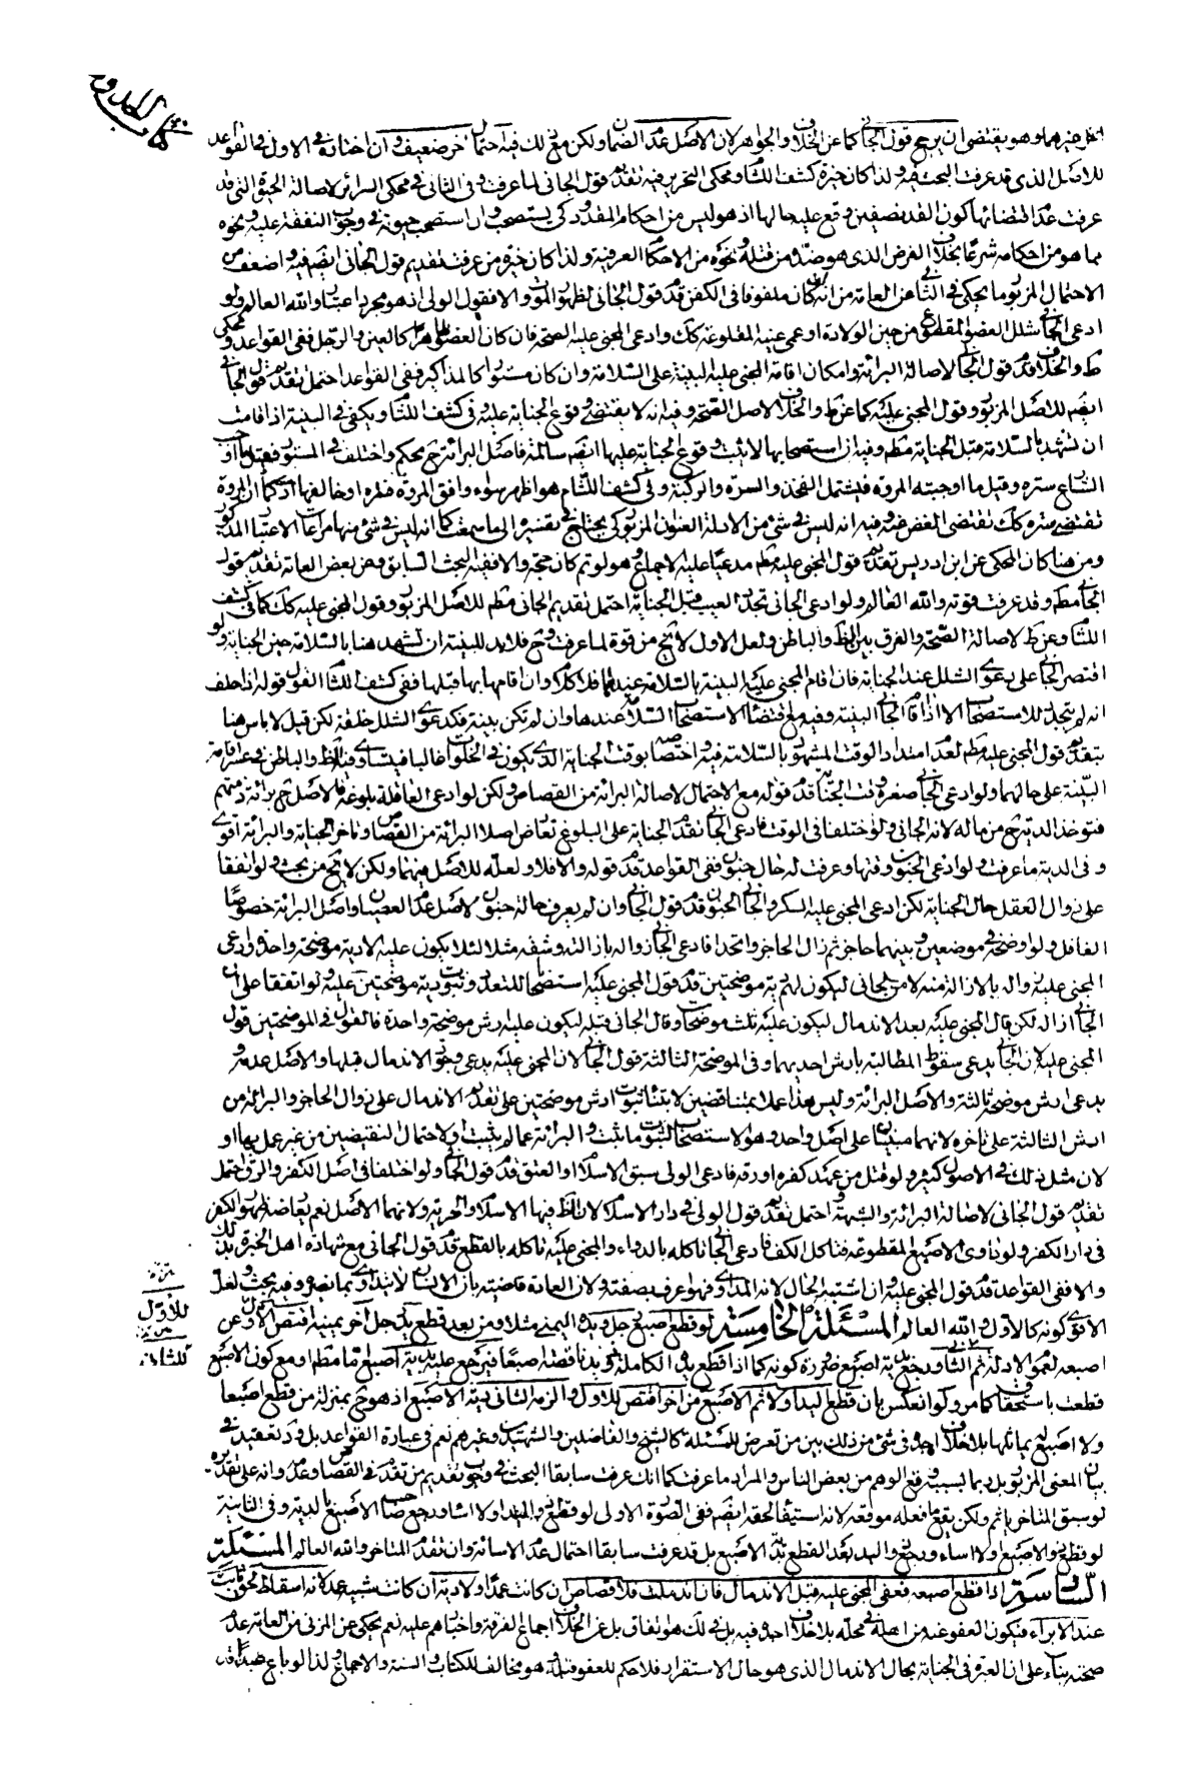 كتاب الحدود
فيهما وهو يقتضى ان يرجع قول الجانى كما عن الخلاف والجواهر لان الاصل عدم الضمان ولكن مع ذلك فيه احتمال اخر ضعيف وان اختاره فى الاول فى القواعد
للاصل الذى قد عرفت البحث فيه ولذا كان خيرة كشف اللثام ومحكى التحرير فيه تقديم قول الجانى لما عرفت وفى الثانى فى محكى السرائر لاصالة الحيوة التى قد
عرفت عدم اقتضائها كون القد نصفين وقع عليه حالها اذ هو ليس من احكام المقدود كى يستصحب وان استصحب حيوته فى وجوب النفقة عليه ونحوه
مما هو من احكامه شرعًا بخلاف الفرض الذى هو ضده من قتله ونحوه من الاحكام العرفية ولذا كان خيرة من عرفت تقديم قول الجانى ايضم فيه واضعف من
الاحتمال المزبور ما يحكى فى الثانى عن العامة من انه ان كان ملفوفا فى الكفن قدم قول الجانى لظهور الموت والا فقول الولى اذ هو مجرد اعتبار والله العالم ولو
ادعى الجانى شلل العضو المقطوع من حين الولادة او عمى عينه المقلوعة كك وادعى المجنى عليه الصحة فان كان العضو ظاهرا كالعين والرجل ففى القواعد ومحكى
ط والخلاف قدم قول الجانى لاصالة البرائة وامكان اقامة المجنى عليه البينة على السلامة وان كان مستورا كالمذاكير ففى القواعد احتمل تقديم قول الجانى
ايضم للاصل المزبور وقول المجنى عليه كما عن ط والخلاف لاصل الصحة وفيه انه لا يقتضى وقوع الجناية عليه وفى كشف اللثام ويكفى فى البينة اذا قامت
ان تشهد بالسلامة قبل الجناية مطم وفيه ان استصحابها لا يثبت وقوع الجناية عليها ايضم سالمة فاصل البرائة ح محكم واختلف فى المستور فقيل ما اوجب
الشارع ستره وقيل ما اوجبته المروة فيشتمل الفخذ والسرة والركبة وفى كشف اللثام هو اظهر سواء وافق المروة ظاهره او خالفها اذ كما ان المروة
تقتضى ستره كك تقتضى الغض عنه وفيه انه ليس فى شئ من الادلة العنوان المزبور كى يحتاج فى تفسيره الى ما سمعت كما انه ليس فى شئ منها مراعات الاعتبار المذكور
ومن هنا كان المحكى عن ابن ادريس تقديم قول المجنى عليه مطم مدعيا عليه الاجماع وهو لو تم كان حجة والا ففيه البحث السابق وعن بعض العامة تقديم قول
الجانى مطم وقد عرفت قوته والله العالم ولو ادعى الجانى تجدد العيب قبل الجناية احتمل تقديم الجانى مطم للاصل المزبور وقول المجنى عليه كك كما فى كشف
اللثام وعن ط لاصالة الصحة والفرق بين الظ والباطن ولعل الاول لا يخ من قوة لما عرفت وح فلا بد للبينة ان تشهد هنا بالسلامة حين الجناية ولو
اقتصر الجانى على دعوى الشلل عند الجناية فان اقام المجنى عليه البينة بالسلامة عندها فلا كلام وان اقامها بها قبلها ففى كشف اللثام القول قوله اذا حلف
انه لم يتجدد للاستصحاب الا اذا اقام الجانى البينة وفيه منع اقتضاء الاستصحاب السلامة عندها وان لم تكن بينة فكدعوى الشلل خلقة لكن قيل لا باس هنا
بتقديم قول المجنى عليه مطم لعدم امتداد الوقت المشهور بالسلامة فيه واختصاصه بوقت الجناية الذى يكون فى الخلوات غالبا فيتساوى فيه الظ والباطن فى عسر اقامة
البينة على حالهما ولو ادعى الجانى صغره وقت الجناية قدم قوله مع الاحتمال لاصالة البرائة من القصاص ولكن لو ادعى العاقلة بلوغه فالاصل ح برائة ذمتهم
فتوخذ الدية ح من ماله لانه الجانى ولو اختلفا فى الوقت فادعى الجانى تقدم الجناية على البلوغ تعارض اصلا البرائة من القصاص وتاخر الجناية والبرائة اقوى
وفى الدية ما عرفت ولو ادعى الجنون وقتها وعرفت له حال جنون ففى القواعد قدم قوله والا فلا ولعله للاصل فيهما ولكن لا يخ من بحث ولو اتفقا
على زوال العقل حال الجناية لكن ادعى المجنى عليه السكر والجانى الجنون قدم قول الجانى وان لم يعرف حالة جنون لاصل عدم العصيان واصل البرائة خصوصًا
الغافل ولو اوضحه فى موضعين وبينهما حاجز ثم زال الحاجز واتحدا فادعى الجانى زواله بازالته وشقه مثلا لئلا يكون عليه الا دية موضحة واحدة وادعى
المجنى عليه زواله بالازالة منه لا من الجانى ليكون له دية موضحتين قدم قول المجنى عليه استصحابا للتعدد وثبوت دية موضحتين عليه ولو اتفقا على ان
الجانى ازاله لكن قال المجنى عليه بعد الاندمال ليكون عليه ثلث موضحات وقال الجانى قبله ليكون عليه ارش موضحة واحدة فالقول فى الموضحتين قول
المجنى عليه لان الجانى يدعى سقوط المطالبة بارش احديهما وفى الموضحة الثالثة قول الجانى لان المجنى عليه يدعى وجود الاندمال قبلها والاصل عدمه و
يدعى ارش موضحة ثالثة والاصل البرائة وليس هذا عملا بمتناقضين لابتناء ثبوت ارش موضحتين على تقدم الاندمال على زوال الحاجز والبرائة من
ارش الثالثة على تاخره لانهما مبنيان على اصل واحد وهو الاستصحاب لثبوت ما ثبت والبرائة عما لم يثبت او لاحتمال النقيضين من غير عمل بهما او
لان مثل ذلك فى الاصول كثير ولو قتل من عهد كفره او رقه فادعى الولى سبق الاسلام او العتق قدم قول الجانى ولو اختلفا فى اصل الكفر والرق احتمل
تقديم قول الجانى لاصالة البرائة والشبهة واحتمل تقديم قول الولى فى دار الاسلام لان الظ فيها الاسلام والحرية ولانهما الاصل نعم يعارضه ظهور الكفر
فى دار الكفر ولو تداوى الاصبع المقطوعة فتاكل الكف فادعى الجانى تاكله بالدواء والمجنى عليه تاكله بالقطع قدم قول الجانى مع شهادة اهل الخبرة بذلك
والا ففى القواعد قدم قول المجنى عليه وان اشتبه الحال لانه المداوى فهو اعرف بصفته ولان العادة قاضية بان الانسان لا يتداوى بما يضره وفيه بحث ولعل
الاقوى كونه كالاول والله العالم المسئلة الخامسة لو قطع اصبع رجل ويده اليمنى مثلا ومن بعد قطع يد رجل آخر يمينه اقتص الاول عن
اصبعه لعموم الادلة ثم الثانى ويرجع بدية اصبع ضرورة كونه كما اذا قطع يده الكاملة ذو يد ناقصة اصبعًا فيرجع عليه بدية اصبع اما مطم او مع كون الاصبع
قطعت باستحقاق كما مر ولو انعكس بان قطع اليد اولا ثم الاصبع من اخر اقتص للاول والزم للثانى دية الاصبع اذ هو ح بمنزلة من قطع اصبعا
ولا اصبع له يماثلها بلا خلاف اجده فى شئ من ذلك بين من تعرض للمسئلة كالشيخ والفاضلين والشهيدين وغيرهم نعم فى عبارة القواعد بل و تعقيد فى
بيان المعنى المزبور بل ربما يسببه وقع الوهم من بعض الناس والمراد ما عرفت كما انك عرفت سابقا البحث فى وجوب تقديم من تقدم فى القصاص وعدمه وانه على تقديره
لو سبق المتاخر ياثم ولكن يقع فعله موقعه لانه استيفاء لحقه ايضم ففى الصورة الاولى لو قطع ذو اليد اولا اساء ويرجع صاحب الاصبع بالدية وفى الثانية
لو قطع ذو الاصبع اولا اساء ويرجع ذو اليد بعد القطع بدية الاصبع بل قد عرفت سابقا احتمال عدم الاساءة وان تقدم المتاخر والله العالم المسئلة
السادسة اذا قطع اصبعه فعفى المجنى عليه قبل الاندمال فان اندملت فلا قصاص ان كانت عمدًا ولا دية ان كانت شبيه عمد لانه اسقاط لحق ثابت
عند الابراء فيكون العفو عنه من اهله فى محله بلا خلاف اجده فيه بل فى لك هو اتفاق بل عن الخلاف اجماع الفرقة واخبارهم عليه نعم يحكى عن المزنى من العامة عدم
صحته بناء على ان العبرة فى الجناية بحال الاندمال الذى هو حال الاستقرار فلا حكم للعفو قبله وهو مخالف للكتاب والسنة والاجماع ولذا لو باع عبدا قد
للأول
للثانى